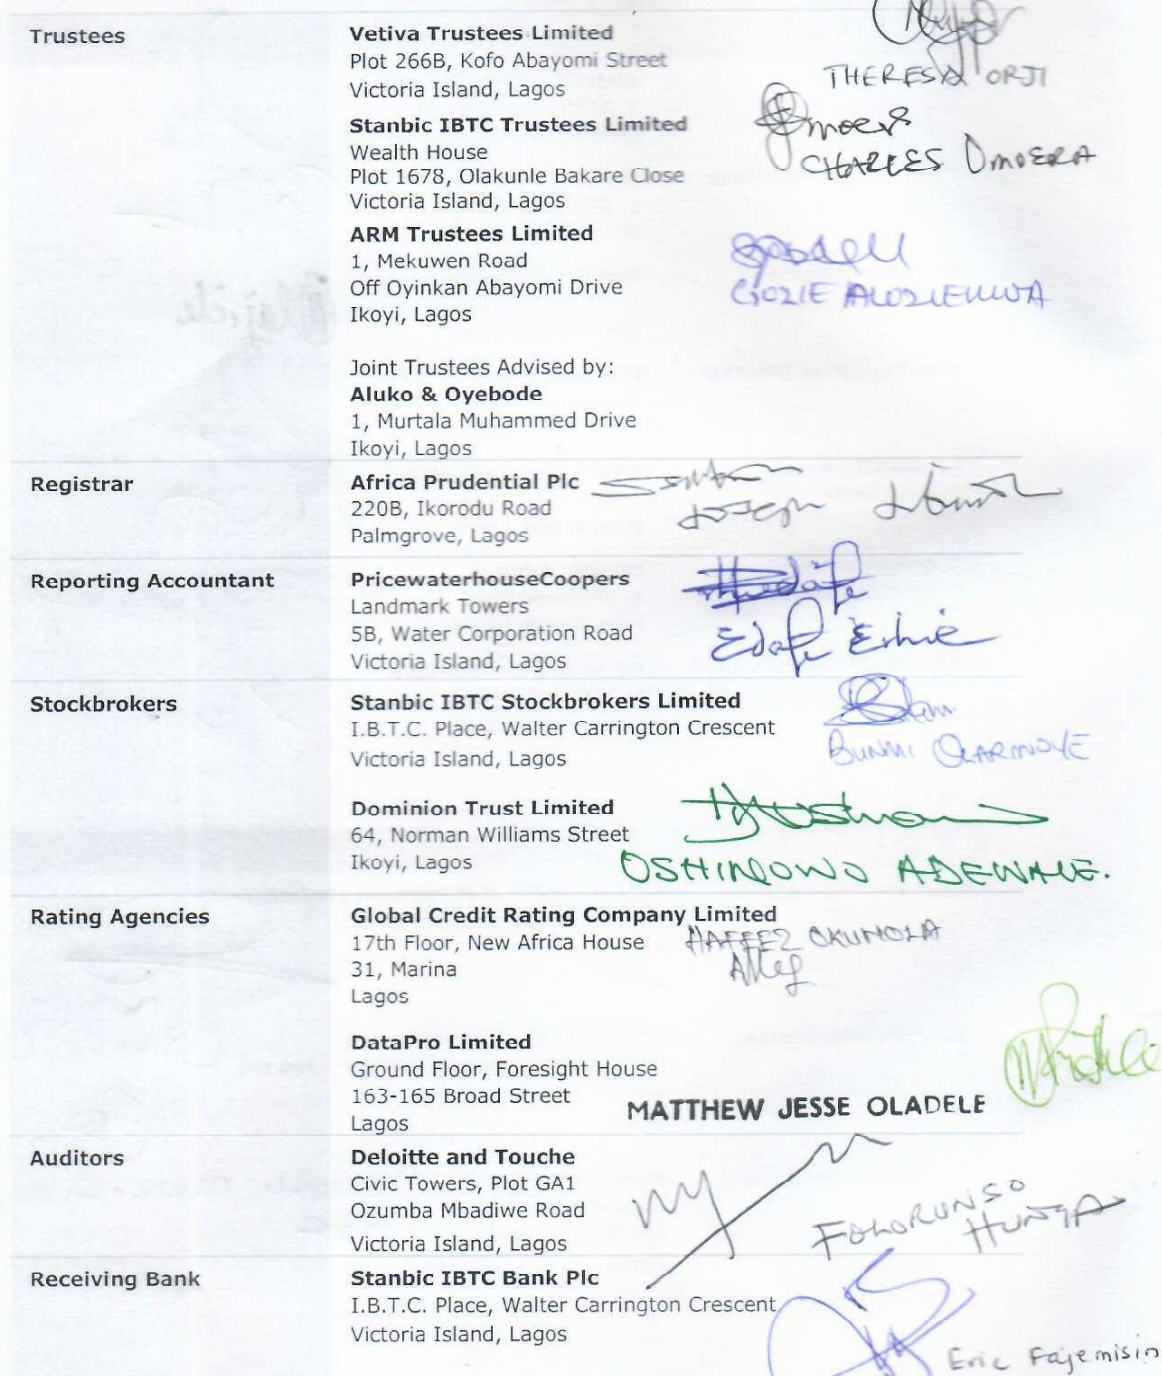 Trustees
Vetiva Trustees Limited
Plot 266B, Kofo Abayomi Street
Victoria Island, Lagos
THERESA ORJI
Stanbic IBTC Trustees Limited
Wealth House
Plot 1678, Olakunle Bakare Close
Victoria Island, Lagos
CHARLES OMOERA
ARM Trustees Limited
1, Mekuwen Road
Off Oyinkan Abayomi Drive
Ikoyi, Lagos
Joint Trustees Advised by:
Aluko & Oyebode
1, Murtala Muhammed Drive
Ikoyi, Lagos
Registrar
Africa Prudential Plc
220B, Ikorodu Road
Palmgrove, Lagos
Joseph
Reporting Accountant
PricewaterhouseCoopers
Landmark Towers
5B, Water Corporation Road
Victoria Island, Lagos
Edafe Erhie
Stockbrokers
Stanbic IBTC Stockbrokers Limited
I.B.T.C. Place, Walter Carrington Crescent
Victoria Island, Lagos
BUNMI OLARINOYE
Dominion Trust Limited
64, Norman Williams Street
Ikoyi, Lagos
OSHINOWO ADEWALE.
Rating Agencies
Global Credit Rating Company Limited
17th Floor, New Africa House
31, Marina
Lagos
HAFEEZ OKUNOLA
DataPro Limited
Ground Floor, Foresight House
163-165 Broad Street
Lagos
MATTHEW JESSE OLADELE
Auditors
Deloitte and Touche
Civic Towers, Plot GA1
Ozumba Mbadiwe Road
Victoria Island, Lagos
FOLORUNSO
HUNGA
Receiving Bank
Stanbic IBTC Bank Plc
I.B.T.C. Place, Walter Carrington Crescent
Victoria Island, Lagos
Eric Fajemisin